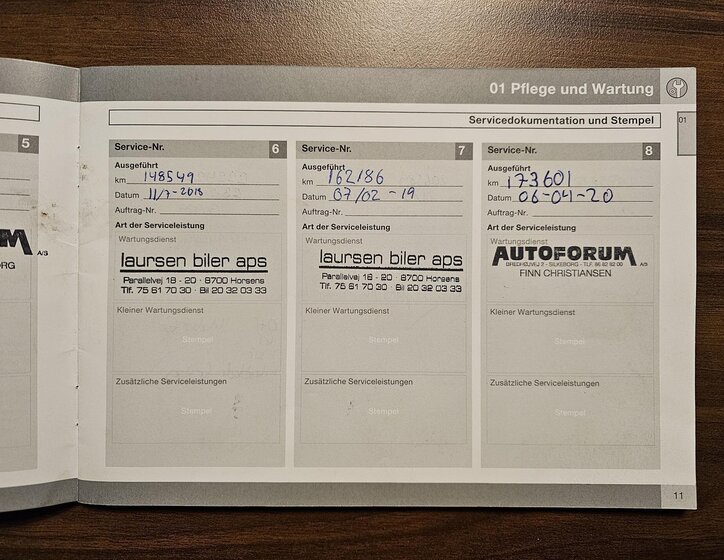 01 Pflege und Wartung
Servicedokumentation und Stempel
01
5
A/S
Service-Nr. 6
Ausgeführt
km 148549
Datum 11/7-2018
Auftrag-Nr.
Art der Serviceleistung
Wartungsdienst
laursen biler aps
Parallelvej 18 - 20 · 8700 Horsens
Tlf. 75 61 70 30 · Bil 20 32 03 33
Kleiner Wartungsdienst
Stempel
Zusätzliche Serviceleistungen
Stempel
Service-Nr. 7
Ausgeführt
km 162186
Datum 07/02-19
Auftrag-Nr.
Art der Serviceleistung
Wartungsdienst
laursen biler aps
Parallelvej 18 - 20 · 8700 Horsens
Tlf. 75 61 70 30 · Bil 20 32 03 33
Kleiner Wartungsdienst
Stempel
Zusätzliche Serviceleistungen
Stempel
Service-Nr. 8
Ausgeführt
km 173601
Datum 06-04-20
Auftrag-Nr.
Art der Serviceleistung
Wartungsdienst
AUTOFORUM A/S
BREDHØJVEJ 2 - SILKEBORG - TLF. 86 82 82 00
FINN CHRISTIANSEN
Kleiner Wartungsdienst
Stempel
Zusätzliche Serviceleistungen
Stempel
11